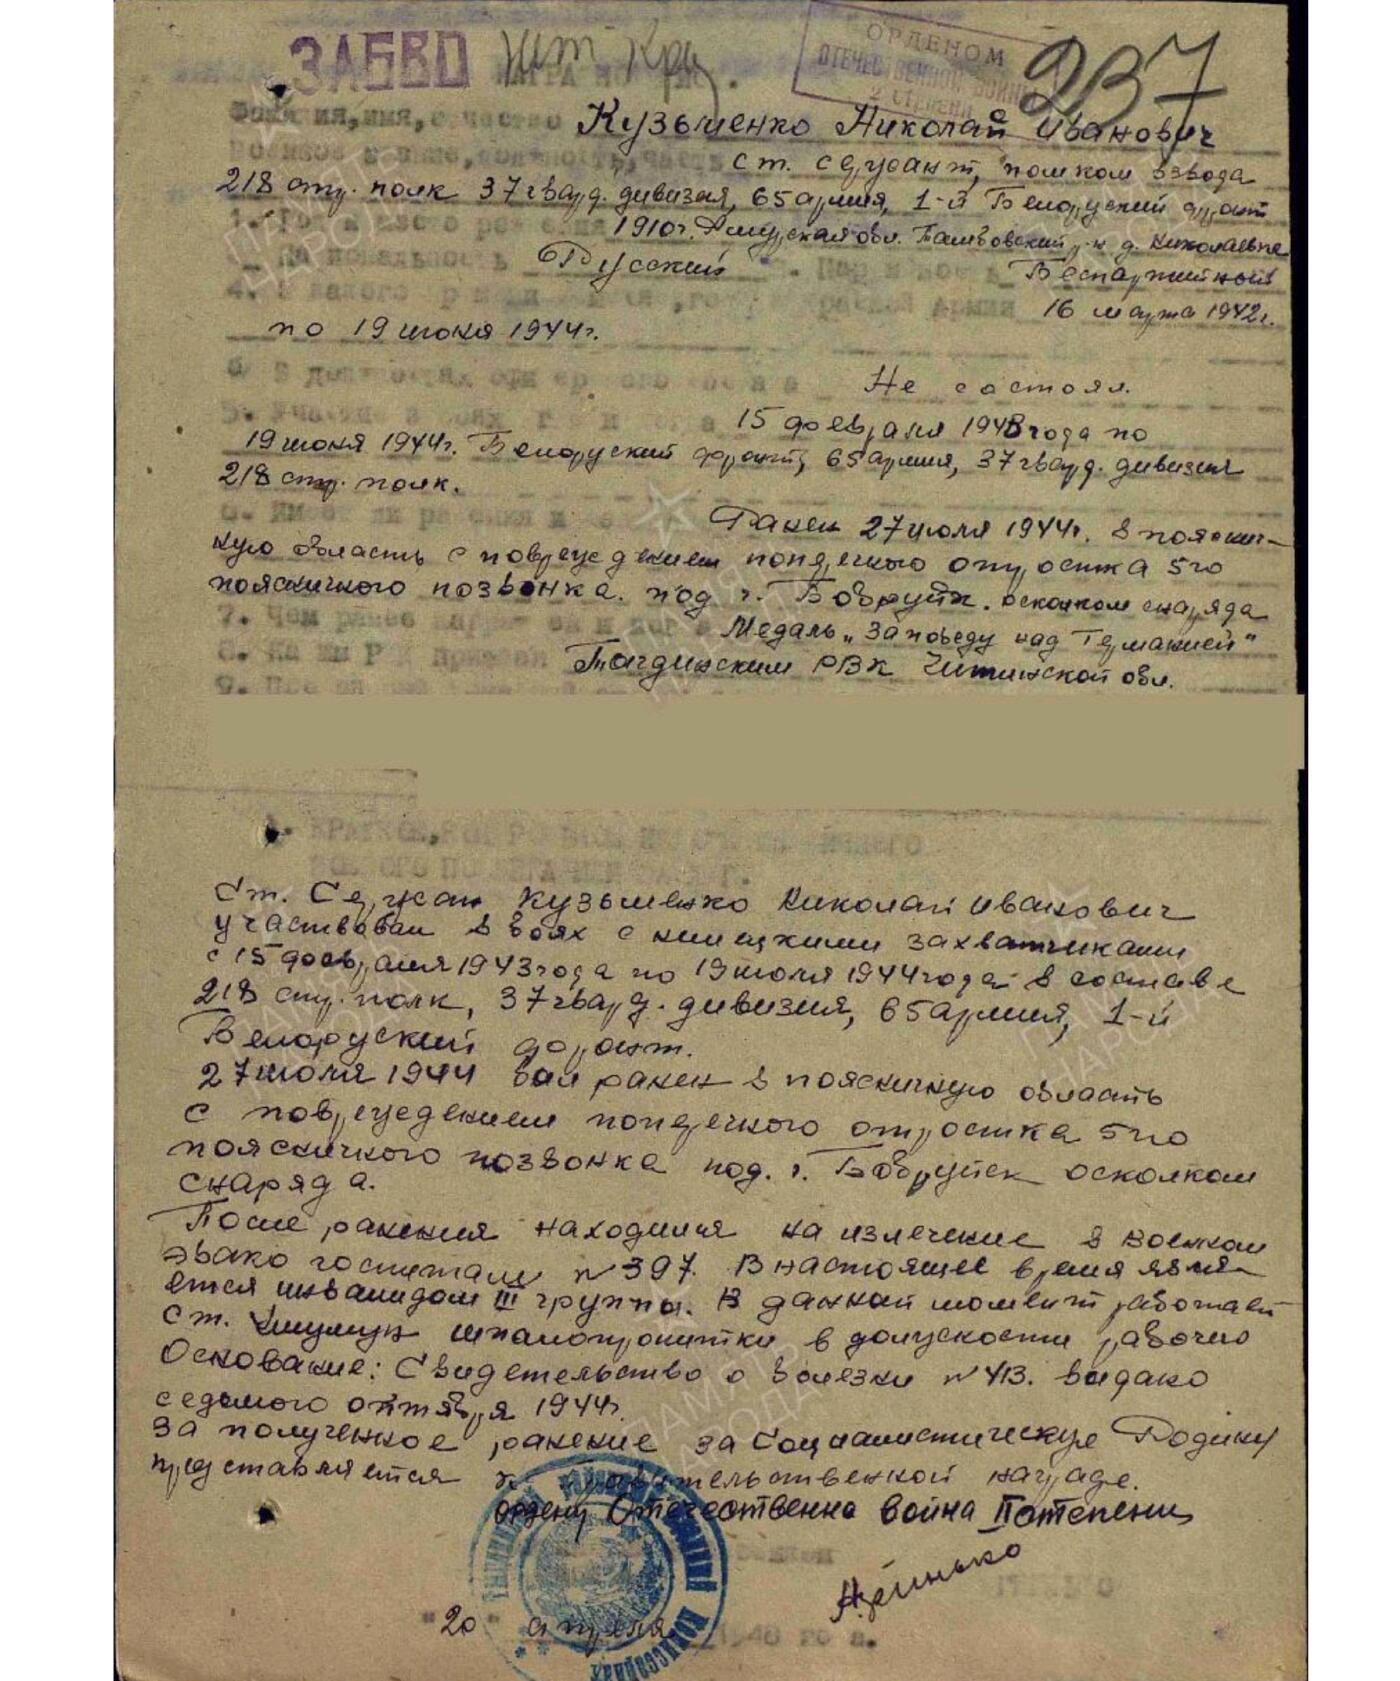 ЗАБВО
ОРДЕНОМ
ОТЕЧЕСТВЕННОЙ ВОЙНЫ
2 СТЕПЕНИ
237
Фамилия, имя, отчество Кузьменко Николай Иванович
ст. сержант, помком взвода
218 стр. полк 37 гвард. дивизия, 65 армия, 1-й Белоруский фронт
1910 г. Амурская обл. Тамбовский р-н д. Николаевка
Русский Беспартийный
4. Красной Армии 16 марта 1942 г.
по 19 июня 1944 г.
Не состоял.
15 февраля 1943 года по
19 июня 1944 г. Белоруский фронт, 65 армия, 37 гвард. дивизия
218 стр. полк.
Ранен 27 июля 1944 г. в пояснич-
ную область с повреждением поперечного отростка 5го
поясничного позвонка. под г. Бобруйск. осколком снаряда
7. Чем ранее Медаль „За победу над Германией"
8. Каким РВК призван Тыгдинским РВК Читинской обл.
9.
Ст. Сержан Кузьменко Николай Иванович
участвовал в боях с немецкими захватчиками
с 15 февраля 1943 года по 19 июля 1944 года в составе
218 стр. полк, 37 гвард. дивизия, 65 армия, 1-й
Белоруский фронт.
27 июля 1944 был ранен в поясничную область
с повреждением поперечного отростка 5го
поясничного позвонка под. г. Бобруйск осколком
снаряда.
После ранения находился на излечение в военном
эвако госпитале № 397. В настоящее время явля-
ется инвалидом III группы. В данный момент работает
ст. шпалопропитки в должности рабочего
Основание: Свидетельство о болезни № 413. выдано
седьмого октября 1944 г.
За полученное ранение за Социалистическую Родину
представляется к правительственной награде.
ордену Отечественна война II степени
"20" апреля 1946 года.